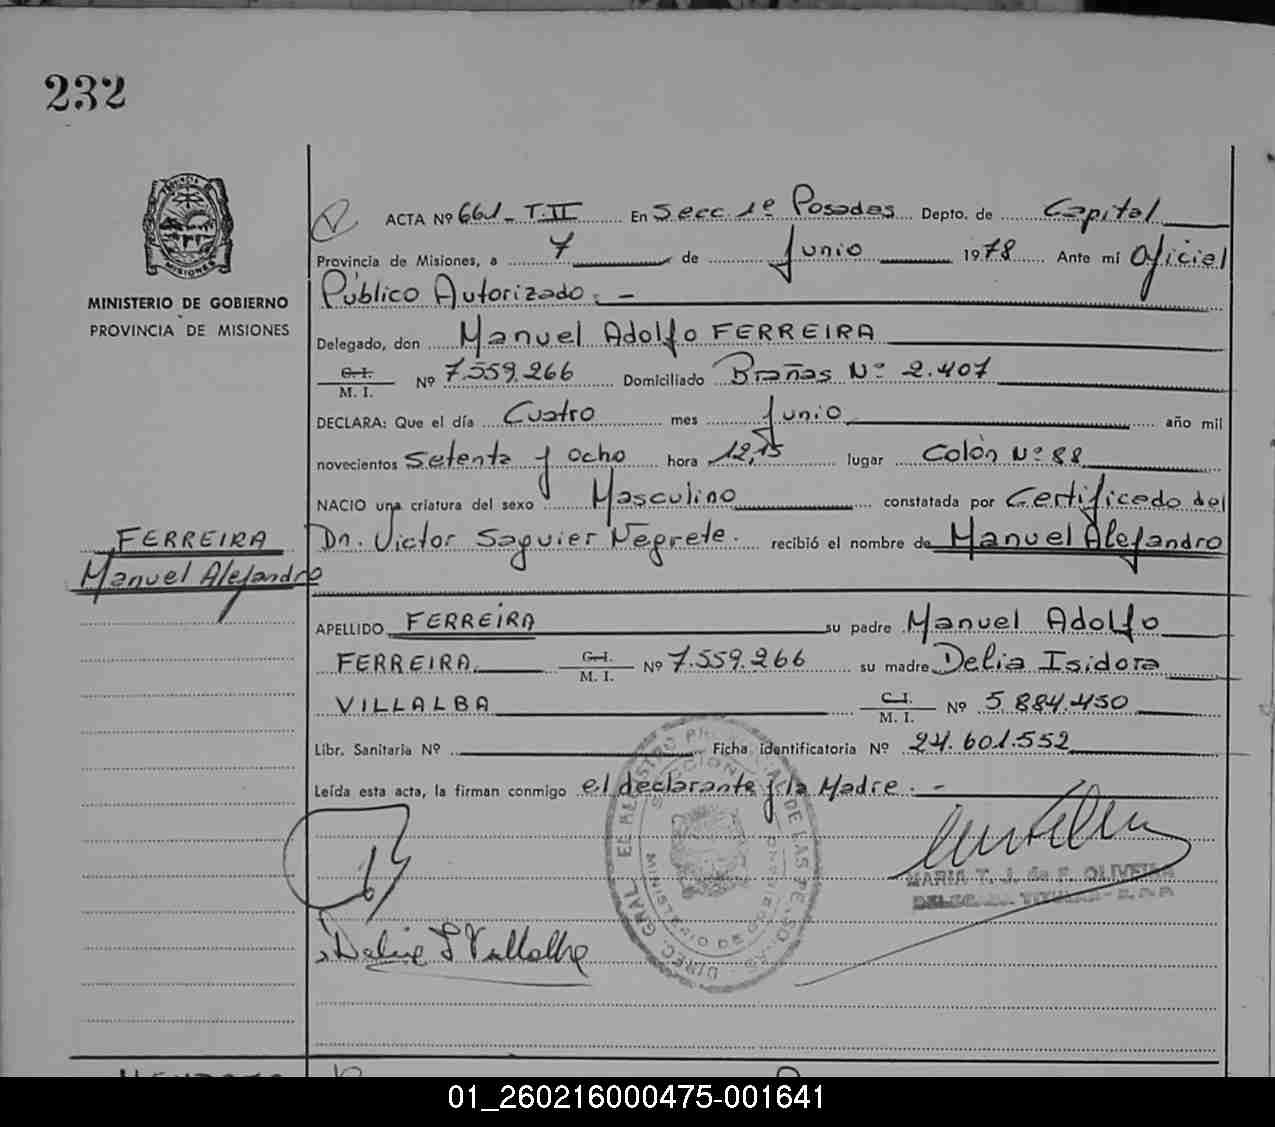 232
MISIONES
MINISTERIO DE GOBIERNO
PROVINCIA DE MISIONES
FERREIRA
Manuel Alejandro
ACTA Nº 661 - T. II En Secc 1ª Posadas Depto. de Capital
Provincia de Misiones, a 7 de Junio 1978 Ante mí Oficial
Público Autorizado. -
Delegado, don Manuel Adolfo FERREIRA
C. I. M. I. Nº 7.559.266 Domiciliado Brañas Nº 2.407
DECLARA: Que el día Cuatro mes Junio año mil
novecientos Setenta y ocho hora 12,15 lugar Colón Nº 88
NACIO una criatura del sexo Masculino constatada por Certificado del
Dr. Victor Saguier Negrete. recibió el nombre de Manuel Alejandro
APELLIDO FERREIRA su padre Manuel Adolfo
FERREIRA. C. I. M. I. Nº 7.559.266 su madre Delia Isidora
VILLALBA C. I. M. I. Nº 5.884.450
Libr. Sanitaria Nº Ficha identificatoria Nº 24.601.552
Leída esta acta, la firman conmigo el declarante y la Madre. -
MARIA T. J. de F. OLIVEIRA
DELEGADA TITULAR
Delia I Villalba
01_260216000475-001641